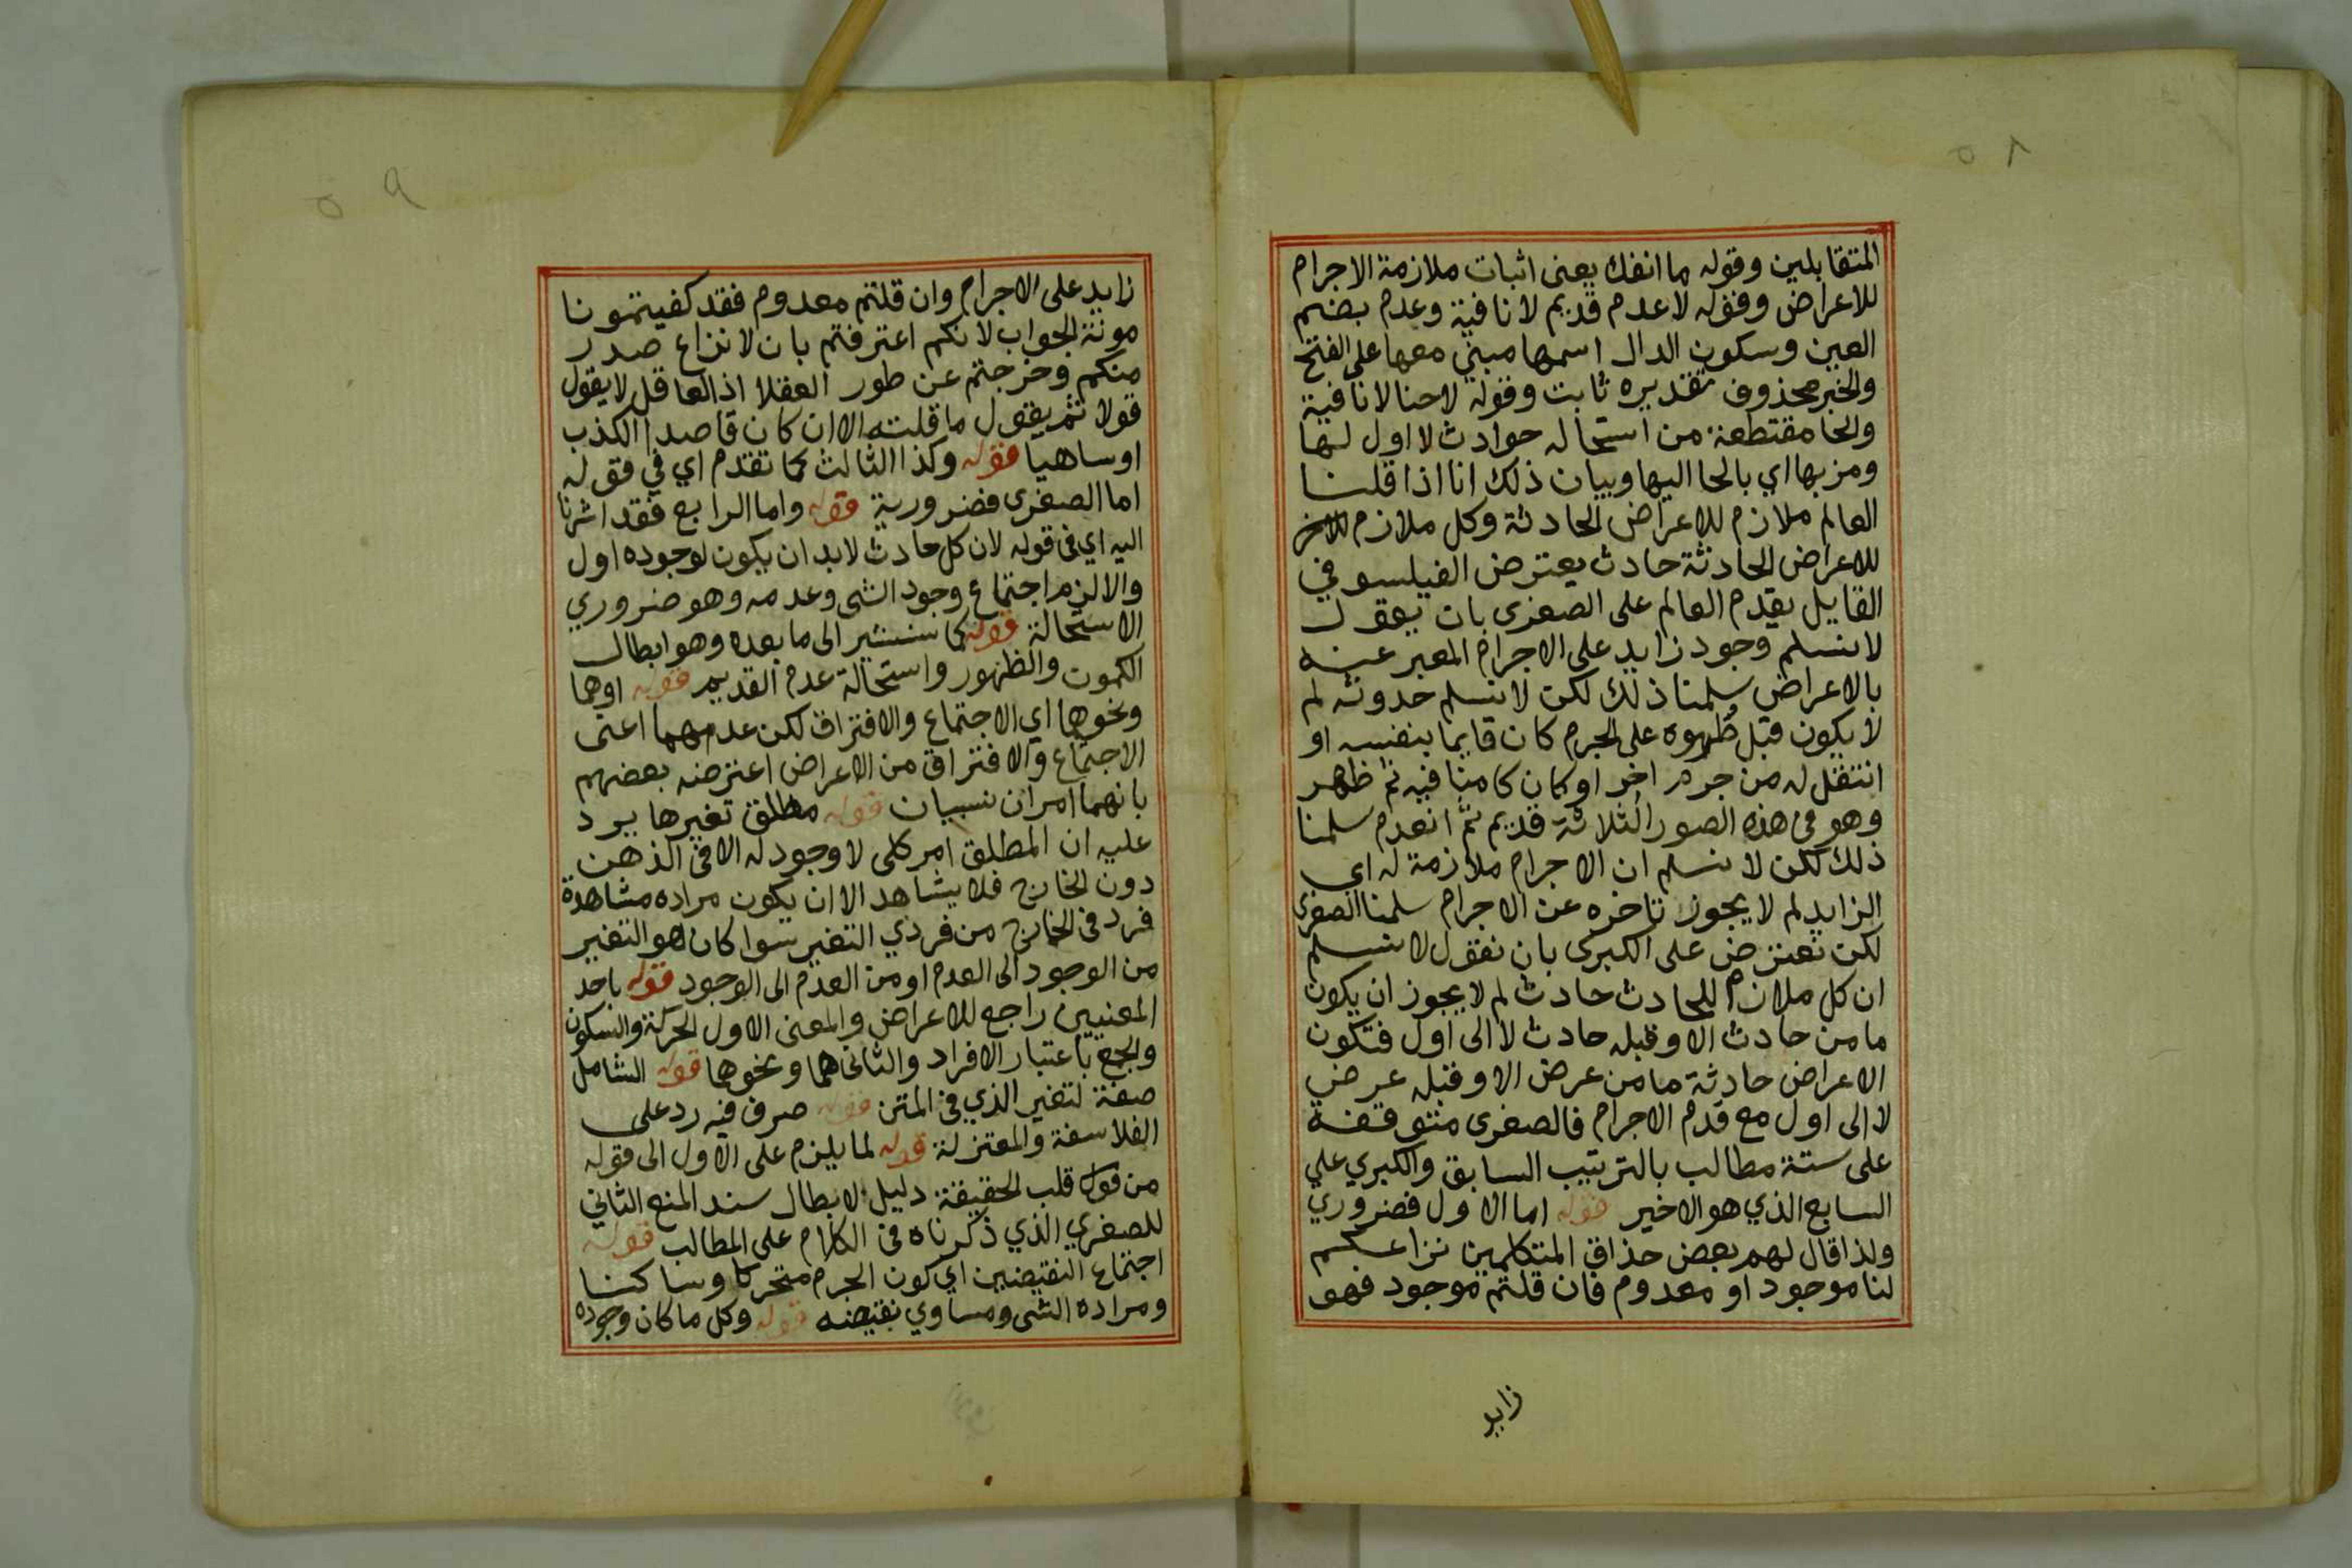 ٥٨
المتقابلين وقوله ما انفك يعنى اثبات ملازمة الاجرام
للاعراض وفقوله لا عدم قديم لا نافية وعدم بضم
العين وسكون الدال اسمها مبني معها على الفتح
والخبر محذوف تقديره ثابت وقوله لاحنا لا نافية
والحا مقتطعة من استحاله حوادث لا اول لها
ومز بها اي بالحا اليها وبيان ذلك انا اذا قلنا
العالم ملازم للاعراض الحادثة وكل ملازم
للاعراض الحادثة حادث يعترض الفيلسوفي
القايل بقدم العالم على الصغرى بان يقول
لا نسلم وجود زايد على الاجرام المعبر عنه
بالاعراض سلمنا ذلك لكن لا نسلم حدوثه لم
لا يكون قبل ظهوره على الجرم كان قايما بنفسه او
انتقل له من جرم اخر او كان كامنا فيه ثم ظهر
وهو في هذه الصور الثلاثة قديم ثم انعدم سلمنا
ذلك لكن لا نسلم ان الاجرام ملازمة له اي
الزايد لم لا يجوز تاخره عن الاجرام سلمنا الصغرى
لكن نعترض على الكبرى بان نقول لا نسلم
ان كل ملازم للحادث حادث لم لا يجوز ان يكون
ما من حادث الا وقبله حادث لا الى اول فتكون
الاعراض حادثة ما من عرض الا وقبله عرض
لا الى اول مع قدم الاجرام فالصغرى متوقفة
على ستة مطالب بالترتيب السابق والكبري علي
السابع الذي هو الاخير قوله اما الاول فضروري
ولذا قال لهم بعض حذاق المتكلمين نزاعكم
لنا موجود او معدوم فان قلتم موجود فهو
زايد
٥٩
زايد على الاجرام وان قلتم معدوم فقد كفيتمونا
مونة الجواب لانكم اعترفتم بان لا نزاع صدر
منكم وخرجتم عن طور العقلا اذ العاقل لا يقول
قولا ثم يقول ما قلته الا ان كان قاصدا الكذب
او ساهيا قوله وكذا الثالث كما تقدم اي في قوله
اما الصغرى فضرورية قوله واما الرابع فقد اشرنا
اليه اي في قوله لان كل حادث لا بد ان يكون لوجوده اول
والا لزم اجتماع وجود الشى وعدمه وهو ضروري
الاستحالة قوله كما سنشير الى ما بعده وهو ابطال
الكمون والظهور واستحالة عدم القديم قوله اوهما
ونحوهما اي الاجتماع والافتراق لكن عدمهما اعنى
الاجتماع والافتراق من الاعراض اعترضه بعضهم
بانهما امران نسبيان قوله مطلق تغيرها يرد
عليه ان المطلق امر كلى لا وجود له الا في الذهن
دون الخارج فلا يشاهد الا ان يكون مراده مشاهدة
فرد في الخارج من فردي التغير سوا كان هو التغير
من الوجود الى العدم او من العدم الى الوجود قوله باحد
المعنيين راجع للاعراض والمعنى الاول الحركة والسكون
والجمع باعتبار الافراد والثانى هما ونحوهما قوله الشامل
صفة لتغير الذي في المتن قوله صرف فيه رد على
الفلاسفة والمعتزلة قوله لما يلزم على الاول الى قوله
من قوله قلب الحقيقة دليل لابطال سند المنع الثاني
للصغري الذي ذكرناه في الكلام على المطالب قوله
اجتماع النقيضين اي كون الجرم متحركا وساكنا
ومراده الشى ومساوي نقيضه قوله وكل ما كان وجوده